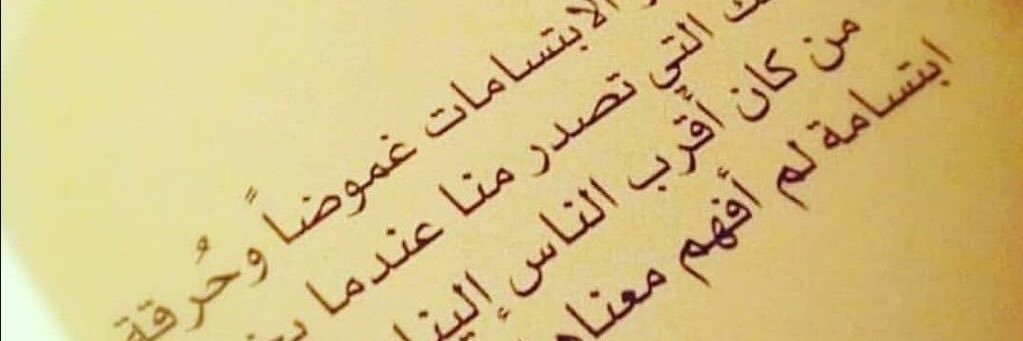 الابتسامات غموضاً وحُرقة
التي تصدر منا عندما
من كان أقرب الناس إلينا
ابتسامة لم أفهم معناها